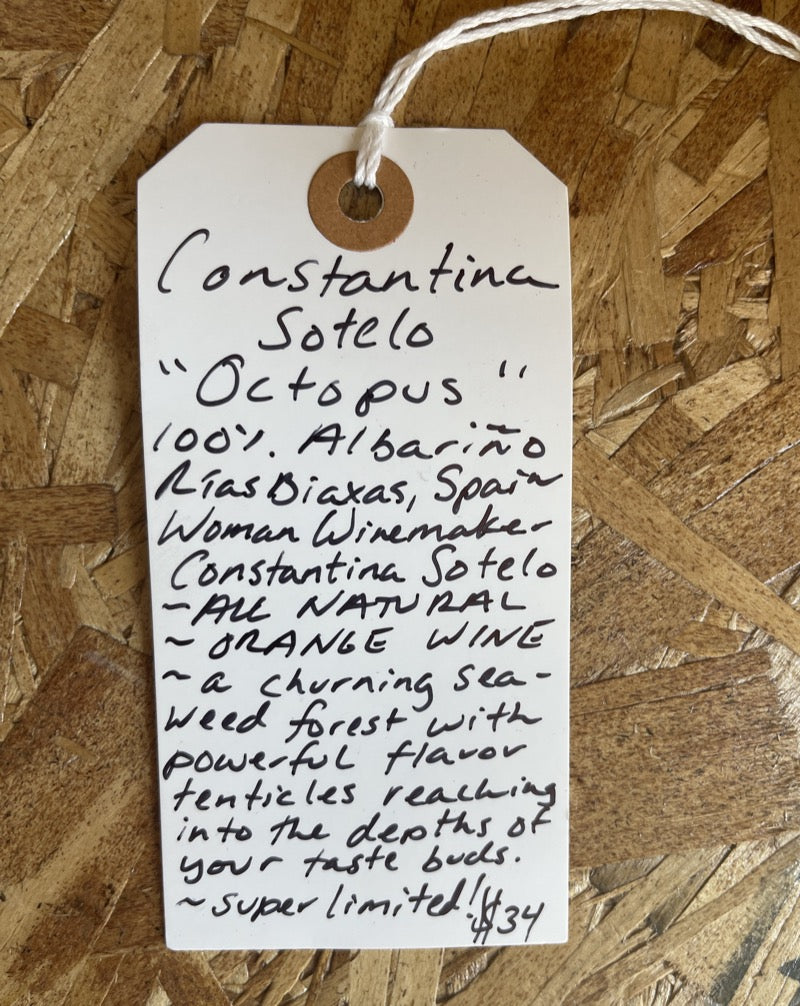 Constantina
Sotelo
"Octopus"
100%. Albariño
Rías Biaxas, Spain
Woman Winemaker
Constantina Sotelo
~ALL NATURAL
~ORANGE WINE
~a churning sea-
weed forest with
powerful flavor
tenticles reaching
into the depths of
your taste buds.
~super limited! $34